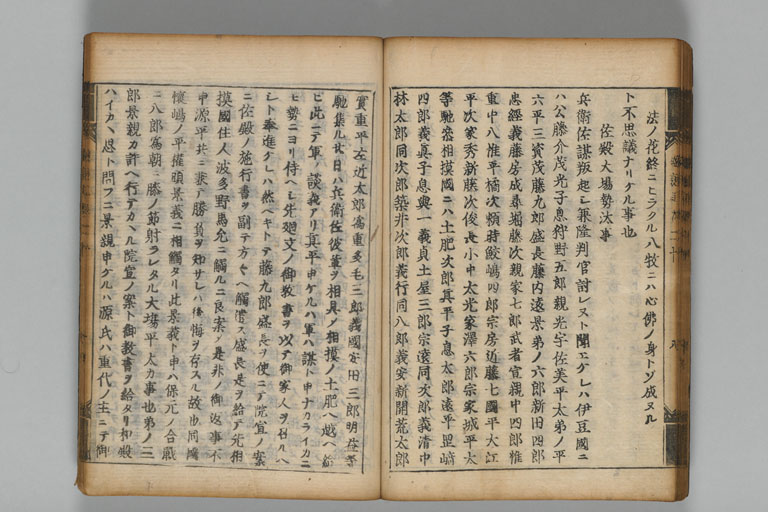 法ノ花終ニヒラクル八牧ニハ心佛ノ身トゾ成ヌル
ト不思議ナリケル事也
佐殿大場勢汰事
兵衛佐謀叛起シ兼隆判官討レヌト聞エケレハ伊豆國ニ
ハ公藤介茂光子息狩野五郎親光宇佐美平太弟ノ平
六平三資茂藤九郎盛長藤内遠景弟ノ六郎新田四郎
忠経義藤房成尋堀藤次親家七郎武者宣親中四郎惟
重中八惟平橘次頼時鮫嶋四郎宗房近藤七國平大江
平次家秀新藤次俊長小中太光家澤六郎宗家城平太
等馳参相摸國ニハ土肥次郎真平子息太郎遠平罡﨑
四郎義真子息與一義貞土屋三郎宗遠同次郎義清中
林太郎同次郎築井次郎義行同八郎義安新開荒太郎
實重平左近太郎為重多毛三郎義國安田三郎明益等
馳集ル廿日ハ兵衛佐彼輩ヲ相具ノ相摸ノ土肥ヘ越ヘ給
ヒ此ニテ軍ノ談義アリ真平申ケルハ軍ハ謀ト申ナカライカニ
モ勢ニヨリ侍ヘシ先廻文ノ御教書ヲ以テ御家人ヲ召ルヘ
シト奉進ケレハ然ヘキトテ藤九郎盛長ヲ使ニテ院宣ノ案
ニ佐殿ノ施行書ヲ副テ方々ヘ觸遣ス盛長是ヲ給テ先相
摸國住人波多野馬允ニ觸ルニ良案ノ是非ノ御返事不
申源平共ニ兼テ勝負ヲ知サレハ後悔ヲ存スル故也同國
懐嶋ノ平權頭景義ニ相觸タリ此景義ト申ハ保元ノ合戰
ニ八郎為朝ニ膝ノ節射ラレタル大場平太カ事也弟ノ三
郎景親カ許ヘ行テカヽル院宣ノ案ト御教書ヲ給タリ和殿
ハイカヽ思ト問フニ景親申ケルハ源氏ハ重代ノ主ニテ御